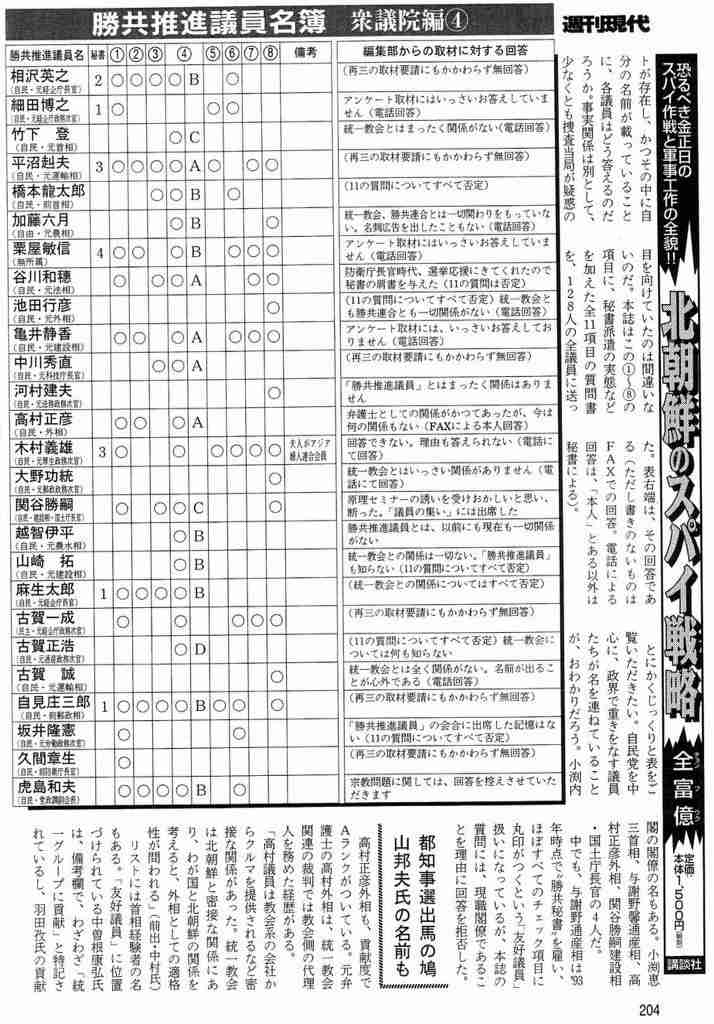 勝共推進議員名簿 衆議院編④
週刊現代
勝共推進議員名 秘書 ① ② ③ ④ ⑤ ⑥ ⑦ ⑧ 備考 編集部からの取材に対する回答
相沢英之 2 ○ ○ ○ ○ B ○ (再三の取材要請にもかかわらず無回答)
(自民・元経企庁長官)
細田博之 1 ○ ○ ○ アンケート取材にはいっさいお答えしていません(電話回答)
(自民・元経企庁政務次官)
竹下 登 ○ C 統一教会とはまったく関係がない(電話回答)
(自民・元首相)
平沼赳夫 3 ○ ○ ○ ○ A ○ ○ ○ (再三の取材要請にもかかわらず無回答)
(自民・元運輸相)
橋本龍太郎 ○ ○ B ○ (11の質問についてすべて否定)
(自民・前首相)
加藤六月 ○ B ○ 統一教会、勝共連合とは一切関わりをもっていない。名刺広告を出したこともない(電話回答)
(自由・元農相)
栗屋敏信 4 ○ ○ ○ B ○ ○ ○ アンケート取材にはいっさいお答えしていません(電話回答)
(無所属)
谷川和穂 ○ ○ ○ A ○ ○ 防衛庁長官時代、選挙応援にきてくれたので秘書の肩書を与えた(11の質問は否定)
(自民・元法相)
池田行彦 ○ (11の質問についてすべて否定)統一教会とも勝共連合とも一切関係がない(電話回答)
(自民・元外相)
亀井静香 ○ ○ ○ B ○ ○ ○ アンケート取材には、いっさいお答えしておりません(電話回答)
(自民・元建設相)
中川秀直 ○ ○ A (再三の取材要請にもかかわらず無回答)
(自民・元科技庁長官)
河村建夫 ○ 「勝共推進議員」とはまったく関係はありません
(自民・元法務政務次官)
高村正彦 ○ ○ ○ A 弁護士としての関係がかつてあったが、今は何の関係もない(FAXによる本人回答)
(自民・外相)
木村義雄 3 ○ ○ ○ ○ ○ ○ 夫人がアジア婦人連合会員 回答できない。理由も答えられない(電話にて回答)
(自民・元厚生政務次官)
大野功統 ○ 統一教会とはいっさい関係がありません(電話にて回答)
(自民・元郵政政務次官)
関谷勝嗣 ○ ○ ○ C ○ 原理セミナーの誘いを受けおかしいと思い、断った。「議員の集い」には出席した
(自民・建設相・国土庁長官)
越智伊平 ○ B 勝共推進議員とは、以前にも現在も一切関係がない
(自民・元農水相)
山崎 拓 ○ B 統一教会との関係は一切ない。「勝共推進議員」も知らない(11の質問についてすべて否定)
(自民・元建設相)
麻生太郎 1 ○ ○ ○ ○ B ○ (統一教会との関係についてはすべて否定)
(自民・元経企庁長官)
古賀一成 ○ ○ ○ ○ ○ (再三の取材要請にもかかわらず無回答)
古賀正浩 ○ D (11の質問についてすべて否定)統一教会については何も知らない
(自民・元通産政務次官)
古賀 誠 ○ 統一教会とは全く関係がない。名前が出ることが心外である(電話回答)
(自民・元運輸相)
自見庄三郎 1 ○ ○ ○ ○ B ○ ○ ○ (再三の取材要請にもかかわらず無回答)
(自民・前郵政相)
坂井隆憲 ○ ○ 「勝共推進議員」の会合に出席した記憶はない(11の質問についてすべて否定)
(自民・元労働政務次官)
久間章生 ○ (再三の取材要請にもかかわらず無回答)
(自民・前防衛庁長官)
虎島和夫 ○ ○ ○ ○ B ○ 宗教問題に関しては、回答を控えさせていただきます
トが存在し、かつその中に自
分の名前が載っていること
に、各議員はどう答えるのだ
ろうか。事実関係は別として、
少なくとも捜査当局が疑惑の
目を向けていたのは間違いな
いのだ。本誌はこの①〜⑧の
項目に、秘書派遣の実態など
を加えた全11項目の質問書
を、128人の全議員に送っ
た。表右端は、その回答であ
る(ただし書きのないものは
FAXでの回答。電話による
回答は、「本人」とある以外は
秘書による)。
とにかくじっくりと表をご
覧いただきたい。自民党を中
心に、政界で重きをなす議員
たちが名を連ねていること
が、おわかりだろう。小渕内
閣の閣僚の名もある。小渕恵
三首相、与謝野馨通産相、高
村正彦外相、関谷勝嗣建設相
・国土庁長官の4人だ。
中でも、与謝野通産相は'93
年時点で“勝共秘書”を雇い、
ほぼすべてのチェック項目に
丸印がつくという「友好議員」
扱いになっているが、本誌の
質問には、現職閣僚であるこ
とを理由に回答を拒否した。
都知事選出馬の鳩
山邦夫氏の名前も
高村正彦外相も、貢献度で
Aランクがついている。元弁
護士の高村外相は、統一教会
関連の裁判では教会側の代理
人を務めた経歴がある。
「高村議員は教会系の会社か
らクルマを提供されるなど密
接な関係があった。統一教会
は北朝鮮と密接な関係にあ
り、わが国と北朝鮮の関係を
考えると、外相としての適格
性が問われる」(前出・中村氏)
リストには首相経験者の名
もある。「友好議員」に位置
づけられている中曽根康弘氏
は、備考欄で、わざわざ「統
一グループに貢献」と特記さ
れているし、羽田孜氏の貢献
恐るべき金正日の
スパイ作戦と軍事工作の全貌!!
北朝鮮のスパイ戦略
全富億
定価・本体1,500円(税別)
講談社
204